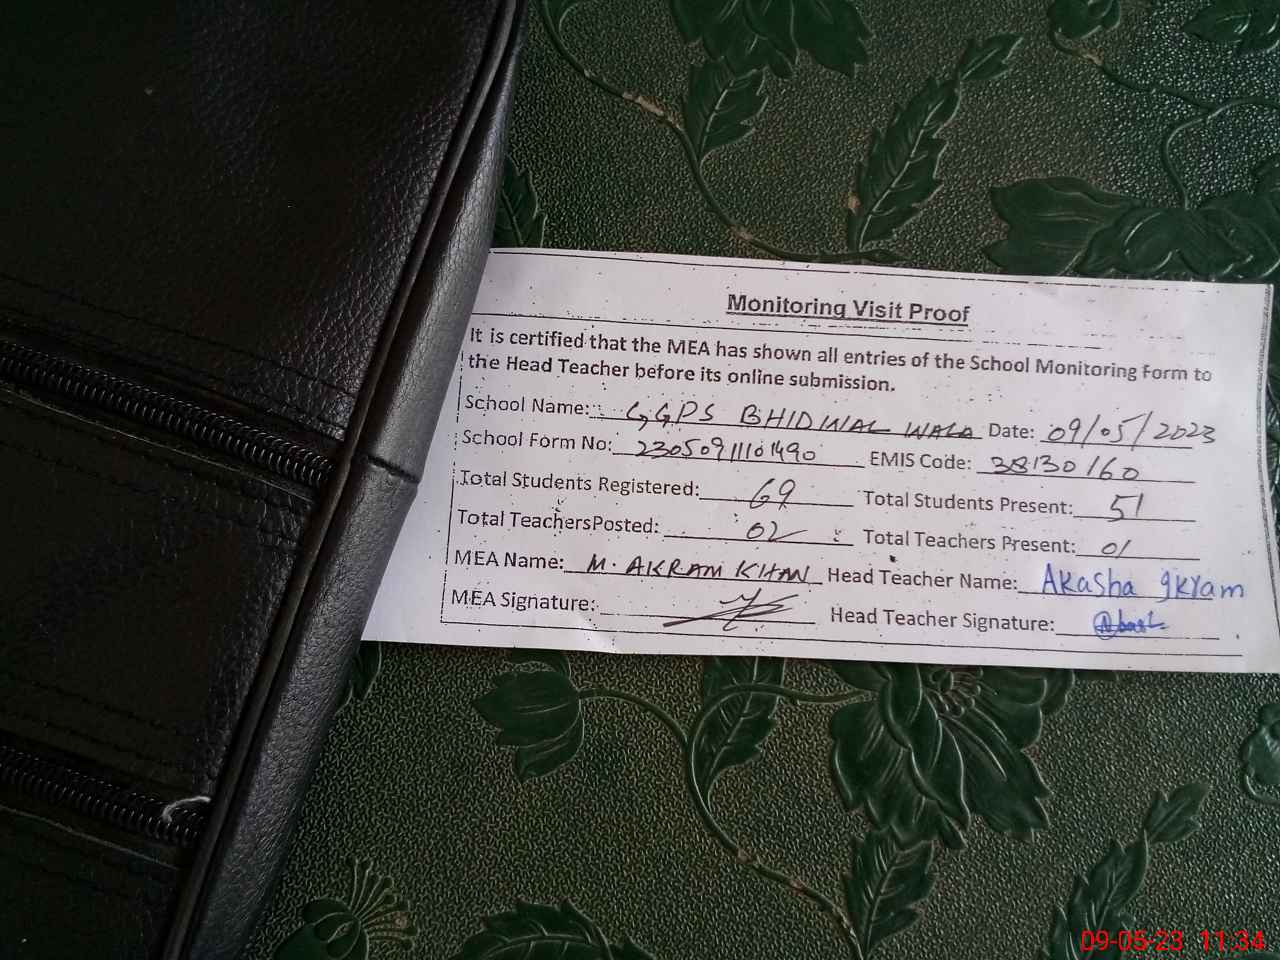 Monitoring Visit Proof
It is certified that the MEA has shown all entries of the School Monitoring Form to
the Head Teacher before its online submission.
School Name: GGPS BHIDWAL WALA Date: 09/05/2023
School Form No: 23050911101490 EMIS Code: 38130160
Total Students Registered: 69 Total Students Present: 51
Total TeachersPosted: 02 Total Teachers Present: 01
MEA Name: M. AKRAM KHAN Head Teacher Name: Akasha Ikram
MEA Signature: Head Teacher Signature:
09-05-23 11:34